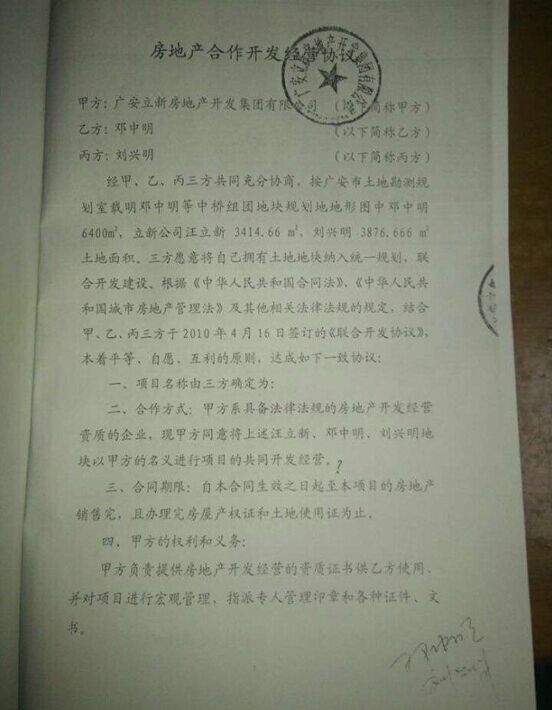 房地产合作开发经营协议
甲方：广安立新房地产开发集团有限公司 （以下简称甲方）
乙方：邓中明 （以下简称乙方）
丙方：刘兴明 （以下简称丙方）
经甲、乙、丙三方共同充分协商，按广安市土地勘测规
划室载明邓中明等中桥组团地块规划地地形图中邓中明
6400㎡，立新公司汪立新 3414.66 ㎡，刘兴明 3876.666 ㎡
土地面积。三方愿意将自己拥有土地地块纳入统一规划、联
合开发建设、根据《中华人民共和国合同法》、《中华人民共
和国城市房地产管理法》及其他相关法律法规的规定，结合
甲、乙、丙三方于 2010 年 4 月 16 日签订的《联合开发协议》，
本着平等、自愿、互利的原则，达成如下一致协议：
一、项目名称由三方确定为：
二、合作方式：甲方系具备法律法规的房地产开发经营
资质的企业。现甲方同意将上述汪立新、邓中明、刘兴明地
块以甲方的名义进行项目的共同开发经营。?
三、合同期限：自本合同生效之日起至本项目的房地产
销售完，且办理完房屋产权证和土地使用证为止。
四、甲方的权利和义务：
甲方负责提供房地产开发经营的资质证书供乙方使用、
并对项目进行宏观管理、指派专人管理印章和各种证件、文
书。